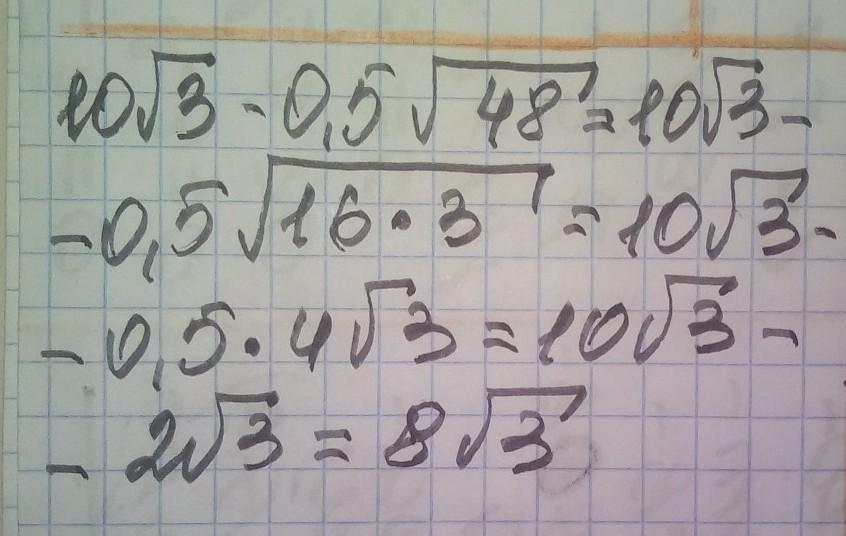 10√3 - 0,5√48 = 10√3 -
- 0,5√16·3 = 10√3 -
- 0,5·4√3 = 10√3 -
- 2√3 = 8√3